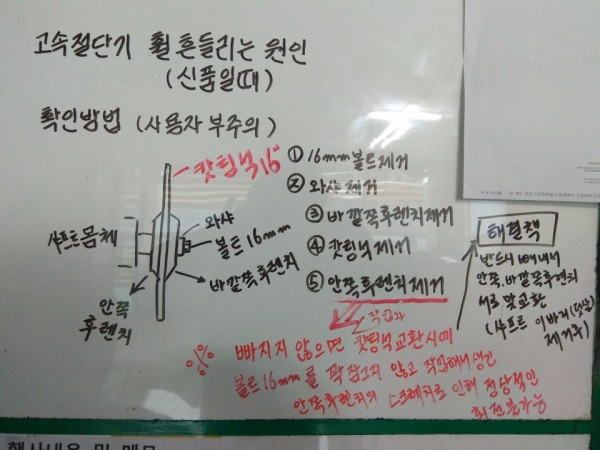 고속절단기 휠 흔들리는 원인
(신품일때)
확인방법 (사용자 부주의)
캇팅석16"
① 16mm볼트제거
② 와샤제거
③ 바깥쪽후렌치제거
④ 캇팅석제거
⑤ 안쪽후렌치제거
샤프트몸체
와샤
볼트16mm
바깥쪽후렌치
안쪽
후렌치
해결책
반드시 빼내서
안쪽.바깥쪽후렌치
서로맞교환
(샤프트 이바리(덧살)
제거후)
작업자
빠지지 않으면 캇팅석교환시에
볼트16mm를 꽉 잠그지 않고 작업해서 생긴
안쪽후렌치의 스크래치로 인해 정상적인
회전불가능